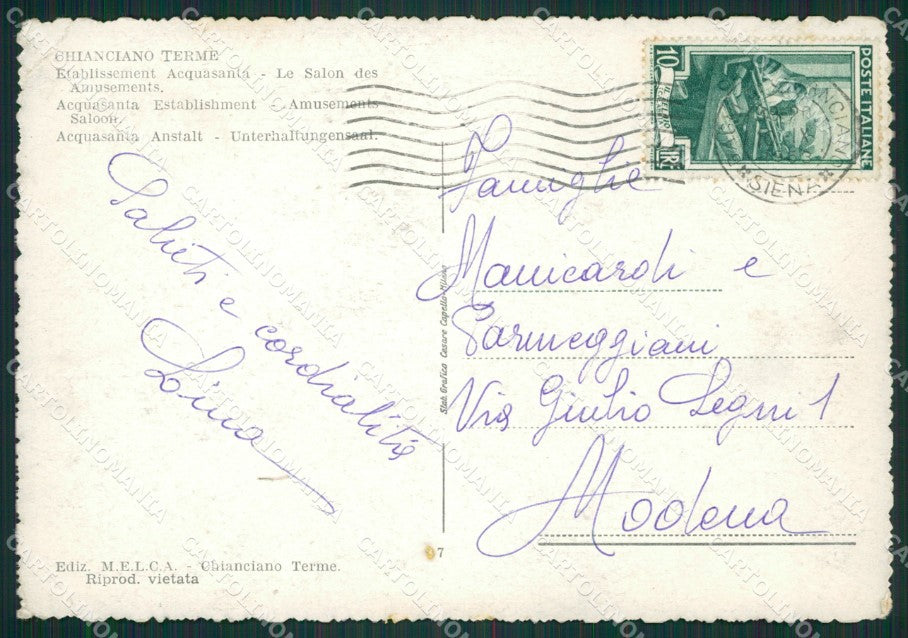 CHIANCIANO TERME
Etablissement Acquasanta - Le Salon des
Amusements.
Acquasanta Establishment - Amusements
Saloon.
Acquasanta Anstalt - Unterhaltungensaal.
10
LIRE
POSTE ITALIANE
CHIANCIANO
*SIENA*
Saluti e cordialità
Lina
Famiglie
Manicardi e
Parmeggiani
Via Giulio Segni 1
Modena
Stab. Grafico Cesare Capello-Milano
7
Ediz. M.E.L.C.A. - Chianciano Terme.
Riprod. vietata
CARTOLINOMANIA